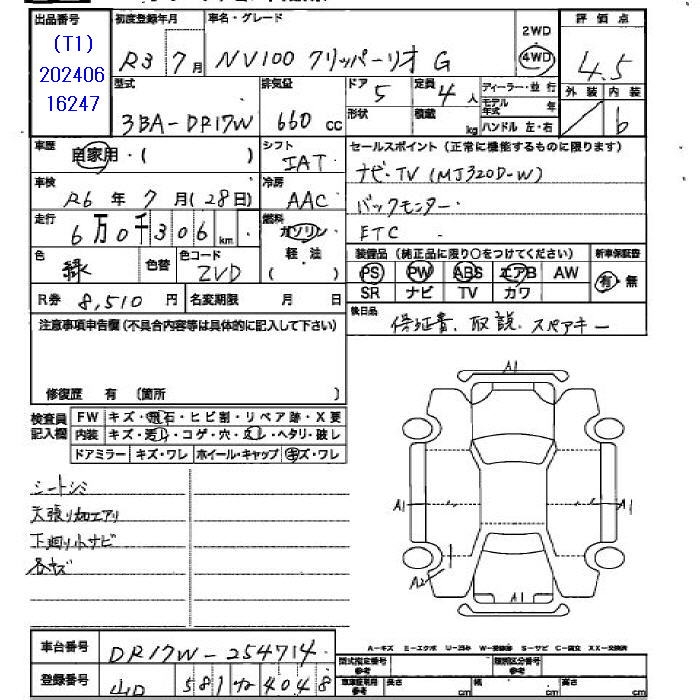 出品番号 初度登録年月 車名・グレード 評価点
(T1)
202406
16247
R3 7月 NV100 クリッパーリオ G 2WD 4WD 4.5
型式 排気量 ドア 定員 ディーラー・並行 外装 内装
3BA-DR17W 660cc 5 4人 モデル年式 年 b
形状 積載 kg ハンドル 左・右
車歴 自家用・( ) シフト IAT セールスポイント(正常に機能するものに限ります)
車検 R6年 7月(28日) 冷房 AAC ナビ・TV (MJ320D-W)
走行 6万0千306km 燃料 ガソリン バックモニター
軽・油 ETC
( )
色 緑 色替 色コード ZVD 装備品(純正品に限り○をつけてください) 新車保証書
PS PW ABS エアB AW 有・無
SR ナビ TV カワ
R券 8,510円 名変期限 月 日
後日品 保証書、取説、スペアキー
注意事項申告欄(不具合内容等は具体的に記入して下さい)
修復歴 有 〔箇所 〕
検査員記入欄 FW キズ・飛石・ヒビ割・リペア跡・X要
内装 キズ・汚れ・コゲ・穴・スレ・ヘタリ・破レ
ドアミラー キズ・ワレ ホイール・キャップ キズ・ワレ
シートシミ
天張り加工アリ
下廻り小サビ
各キズ
A1
A1 A1
A2
A1
A-キズ E-エクボ U-凹み W-補修跡 S-サビ C-腐食 XX-交換済
車台番号 DR17W-254714
型式指定番号 参考 類別区分番号 参考
登録番号 581 4048
車庫証明用 参考 長さ cm 幅 cm 高さ cm